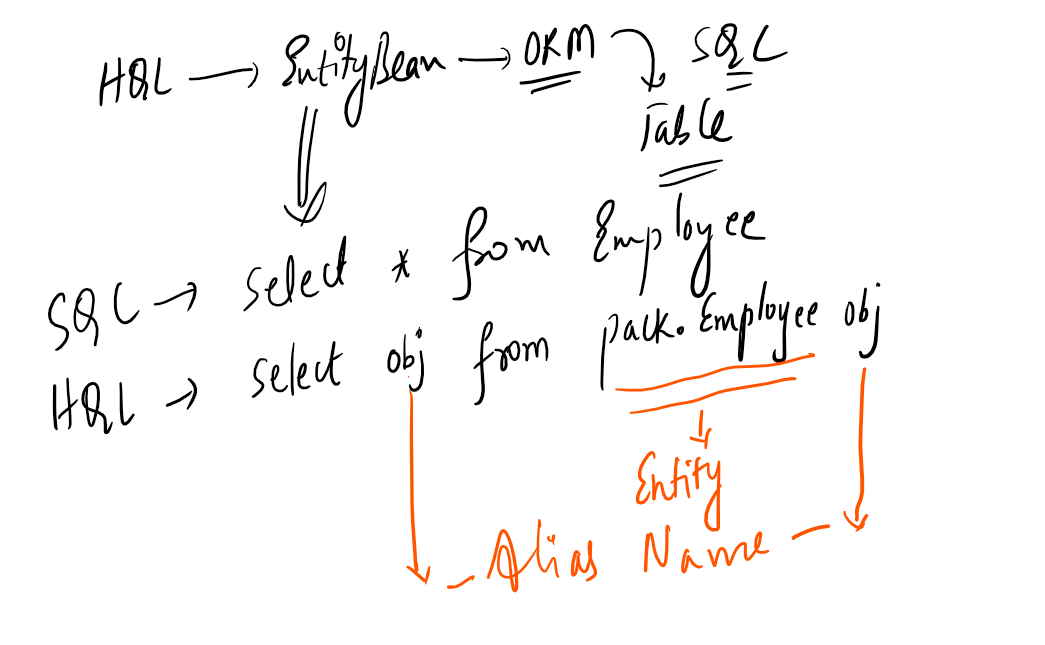 HQL → EntityBean → ORM SQL
Table
SQL → select * from Employee
HQL → select obj from pack.Employee obj
Entity
- Alias Name -